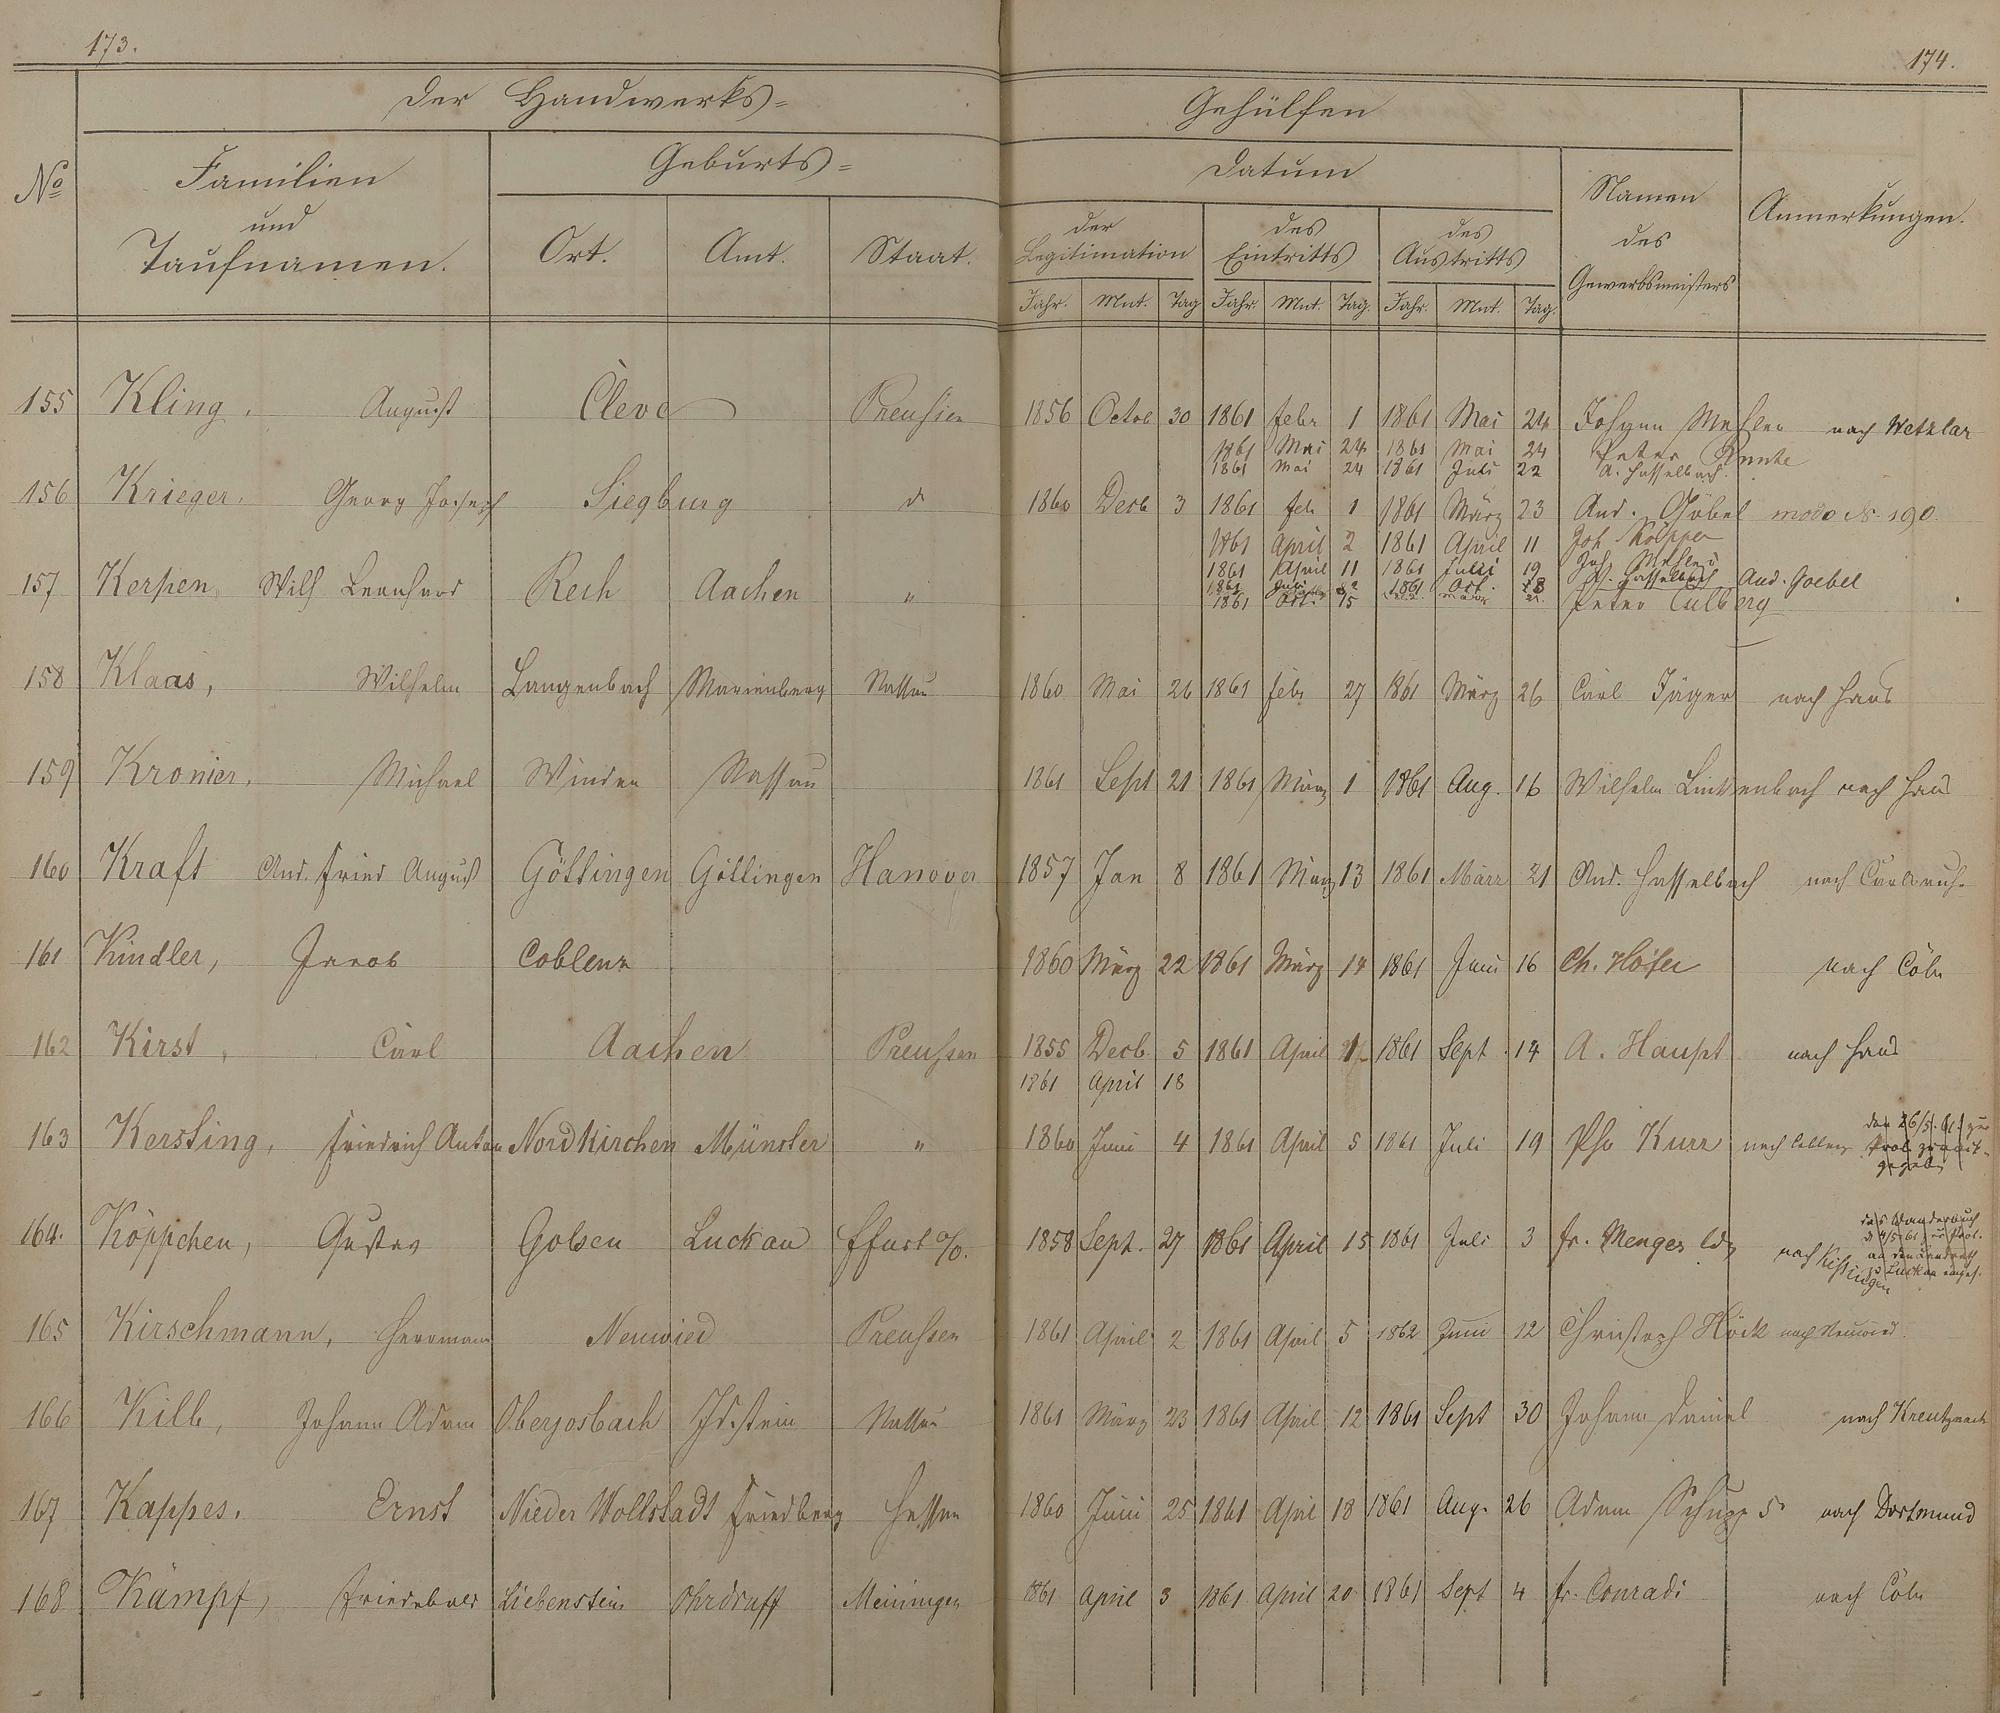 173.
174.
Der Handwerks=
Gehülfen
No
Familien
und
Taufnamen.
Geburts=
Ort.
Amt.
Staat.
Datum
der
Legitimation
des
Eintritts
des
Austritts
Jahr. Mnt. Tag Jahr. Mnt. Tag. Jahr. Mnt. Tag.
Namen
des
Gewerbsmeisters
Anmerkungen.
155 Kling, August Cleve Preußen 1856 Octob 30 1861 febr 1 1861 Mai 24 Johann Mehler nach Wetzlar
1861 Mai 24 1861 Mai 24 Peter
1861 Mai 24 1861 Juli 22 A. Hasselbach
156 Krieger, Georg Joseph Siegburg do 1860 Decb 3 1861 feb 1 1861 März 23 And. Göbel modo N. 190.
1861 April 2 1861 April 11 Joh. Köpper
1861 April 11 1861 Juli 19 Joh. Mehler
157 Kerpen, Wilh Leonhard Rech Aachen " 1861 1861 Oct. A. Hasselbach And. Goebel
1861 Oct. 15 Peter Culberg
158 Klaas, Wilhelm Langenbach Marienberg Nassau 1860 Mai 26 1861 febr 27 1861 März 26 Carl Jäger nach Haus
159 Kronier, Michael Winden Nassau 1861 Sept 21 1861 März 1 1861 Aug. 16 Wilhelm Linkenbach nach Haus
160 Kraft And. Fried August Göttingen Göttingen Hanover 1857 Jan 8 1861 März 13 1861 März 21 And. Hasselbach nach Carlsruhe
161 Kindler, Jacob Coblenz 1860 März 22 1861 März 14 1861 Juni 16 Ch. Höfer nach Cöln
162 Kirst, Carl Aachen Preußen 1855 Decb. 5 1861 April 1861 Sept. 14 A. Haupt nach Haus
1861 April 18
163 Kersting, Friedrich Anton Nordkirchen Münster " 1860 Juni 4 1861 April 5 1861 Juli 19 Ph. Kurz nach Coblenz den 26/5. 61. zur
Prol
164. Köppchen, Gustav Golsen Luckau Ffurt a/o. 1858 Sept. 27 1861 April 15 1861 Juli 3 fr. Menges nach Kissingen das Wanderbuch
d 4/5 61 zur Prol.
an den Landrath
zu Luckau
165 Kirschmann, Herrmann Neuwied Preußen 1861 April 2 1861 April 5 1862 Juni 12 Christoph Höck nach Neuwied.
166 Kilb, Johann Adam Oberjosbach Idstein Nassau 1861 März 23 1861 April 12 1861 Sept 30 Johann Daniel nach Kreutznach
167 Kappes, Ernst Nieder Wollstadt Friedberg Hessen 1860 Juni 25 1861 April 18 1861 Aug. 26 Adam Schupp 5r nach Dortmund
168 Kämpf, Friedebald Liebenstein Ohrdruff Meiningen 1861 April 3 1861 April 20 1861 Sept 4 fr. Conradi nach Cöln